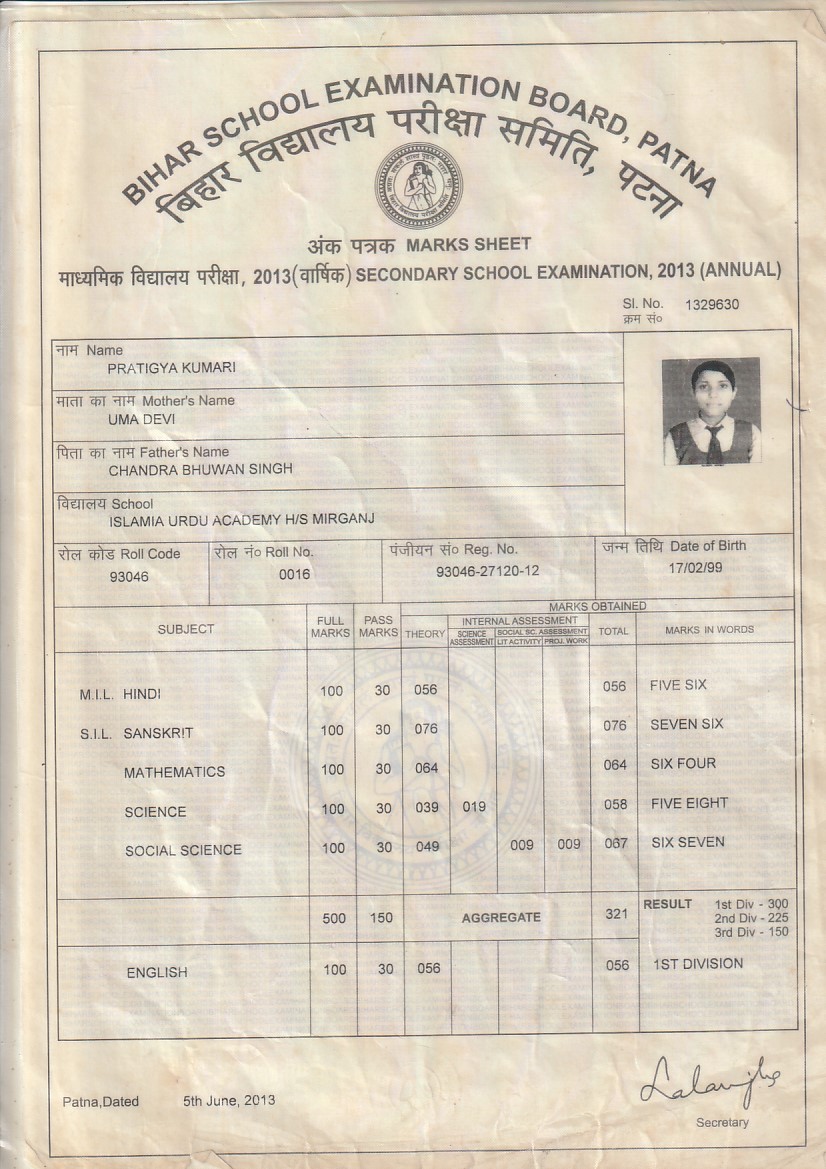 BIHAR SCHOOL EXAMINATION BOARD, PATNA
बिहार विद्यालय परीक्षा समिति, पटना
अंक पत्रक MARKS SHEET
माध्यमिक विद्यालय परीक्षा, 2013(वार्षिक) SECONDARY SCHOOL EXAMINATION, 2013 (ANNUAL)
Sl. No. 1329630
क्रम सं०
नाम Name
PRATIGYA KUMARI
माता का नाम Mother's Name
UMA DEVI
पिता का नाम Father's Name
CHANDRA BHUWAN SINGH
विद्यालय School
ISLAMIA URDU ACADEMY H/S MIRGANJ
रोल कोड Roll Code रोल नं० Roll No. पंजीयन सं० Reg. No. जन्म तिथि Date of Birth
93046 0016 93046-27120-12 17/02/99
MARKS OBTAINED
SUBJECT FULL MARKS PASS MARKS THEORY INTERNAL ASSESSMENT TOTAL MARKS IN WORDS
SCIENCE ASSESSMENT SOCIAL SC. ASSESSMENT
LIT ACTIVITY PROJ. WORK
M.I.L. HINDI 100 30 056 056 FIVE SIX
S.I.L. SANSKRIT 100 30 076 076 SEVEN SIX
MATHEMATICS 100 30 064 064 SIX FOUR
SCIENCE 100 30 039 019 058 FIVE EIGHT
SOCIAL SCIENCE 100 30 049 009 009 067 SIX SEVEN
500 150 AGGREGATE 321 RESULT 1st Div - 300
2nd Div - 225
3rd Div - 150
ENGLISH 100 30 056 056 1ST DIVISION
Patna,Dated 5th June, 2013
Secretary